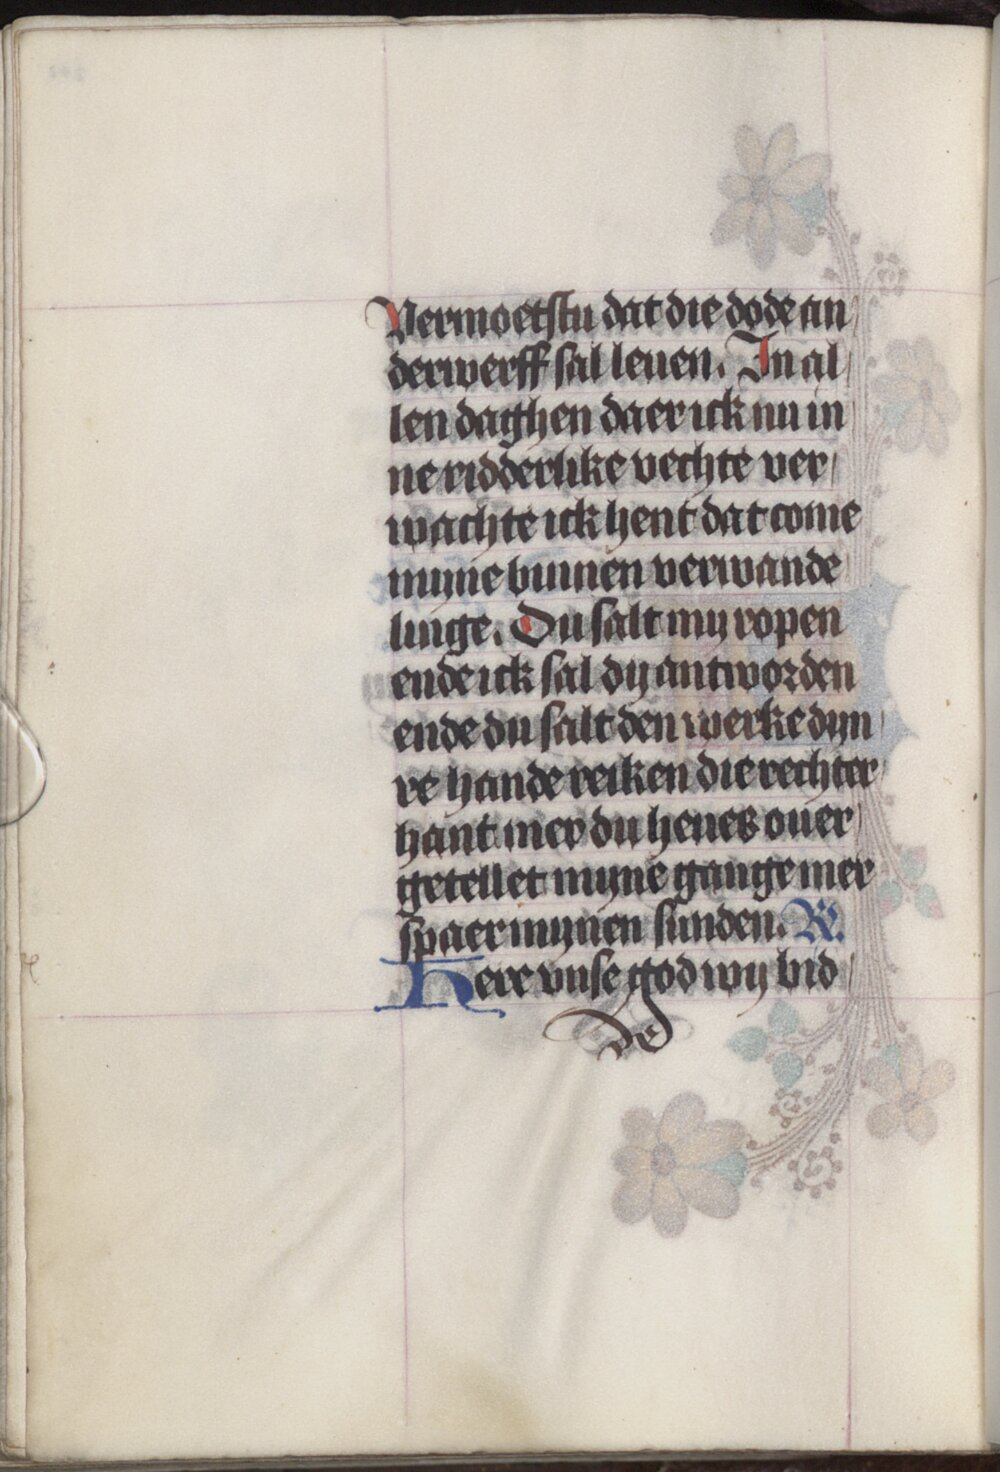 Vermoetstu dat die dode an
derwerff sal leuen. In al
len daghen daer ick nu in
ne ridderlike vechte ver
wachte ick hent dat come
myne buuen verwande
linge. Du salt my ropen
ende ick sal dy antworden
ende du salt den werke dyn
re hande reiken die rechter
hant mer du heues ouer
getellet myne gange mer
spaer mynen sunden. R.
Here vnse god wy bid
de